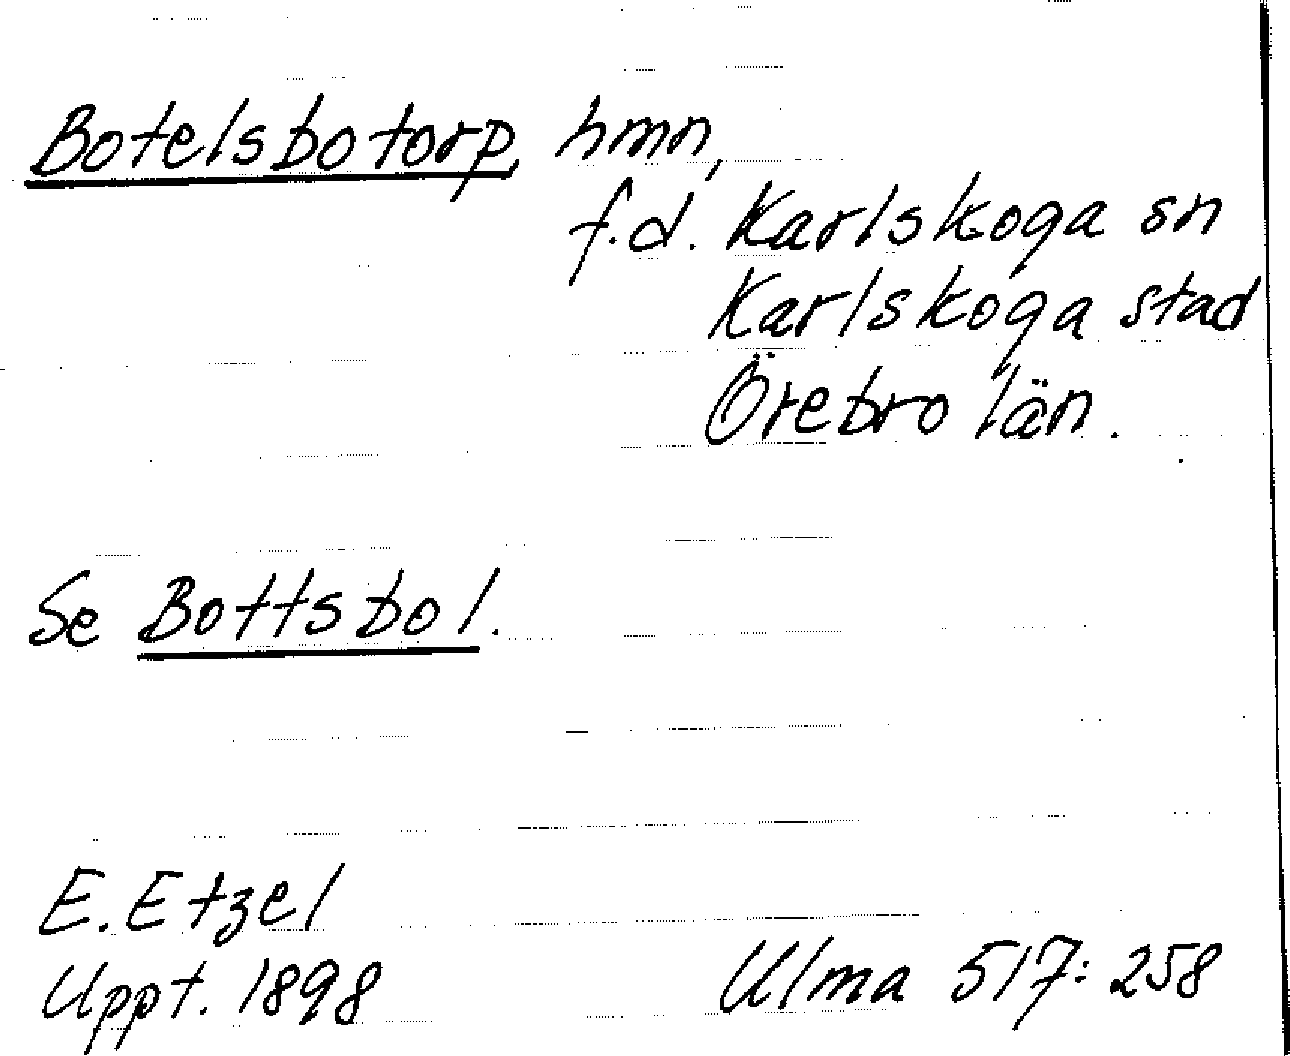 Botelsbotorp, hmn,
f.d. Karlskoga sn
Karlskoga stad
Örebro län.
Se Bottsbol.
E. Etzel
Uppt. 1898
Ulma 517:258